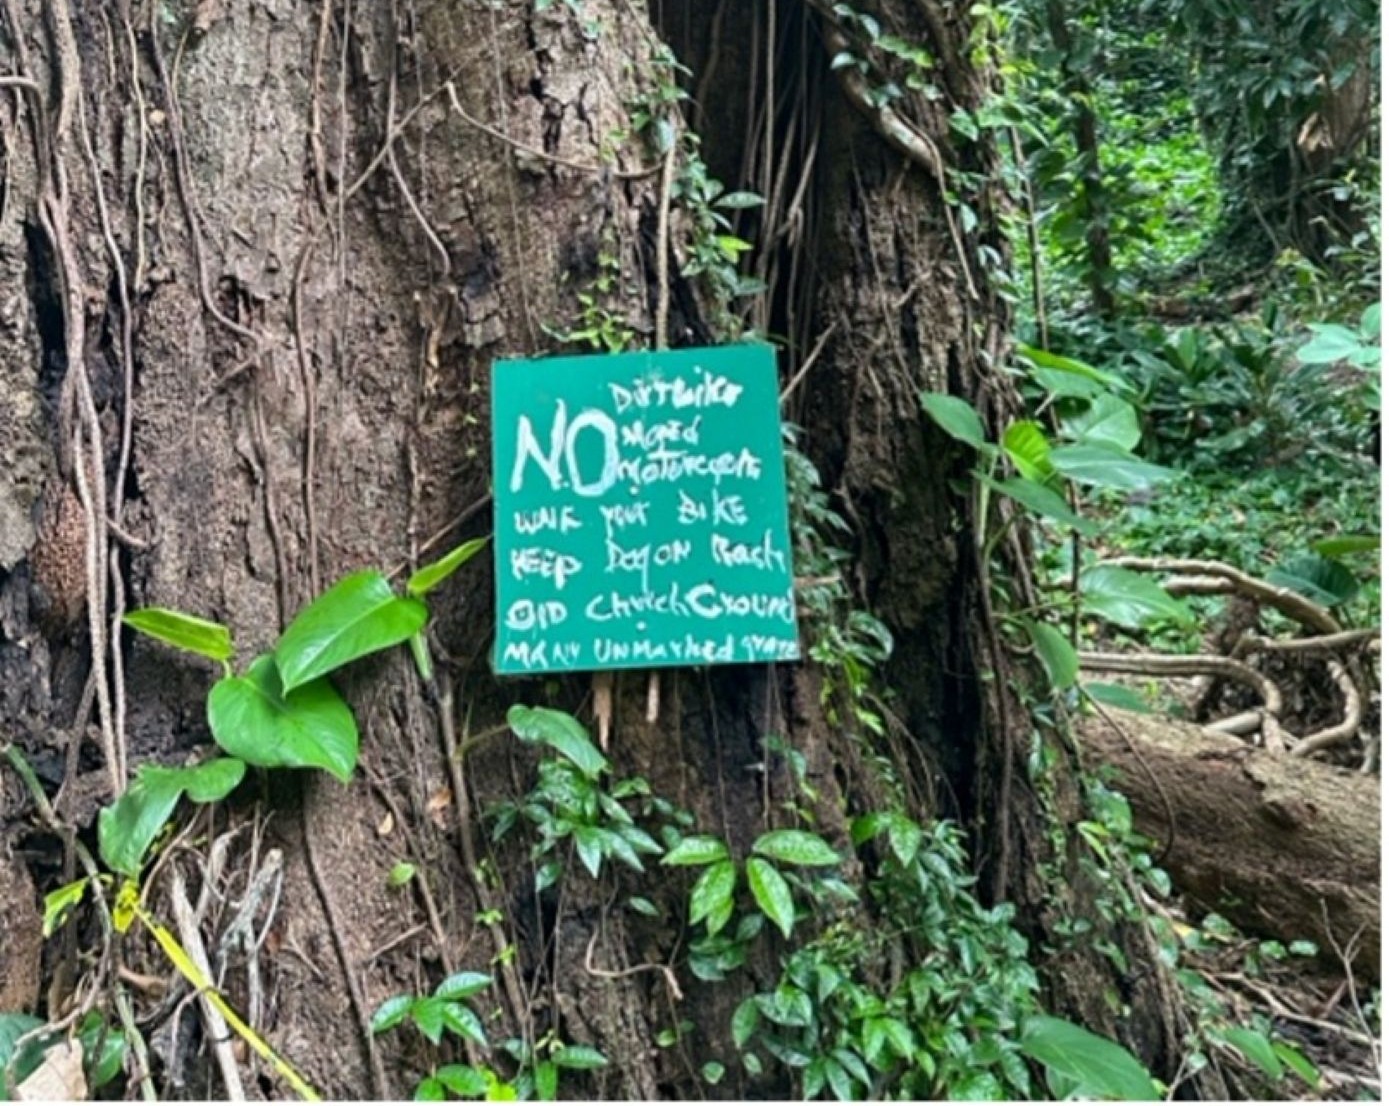 NO Dirtbikes
Moped
Motorcycle
WALK YOUR BIKE
KEEP Dog ON leash
OlD Church Ground
MANY UNMarked grave